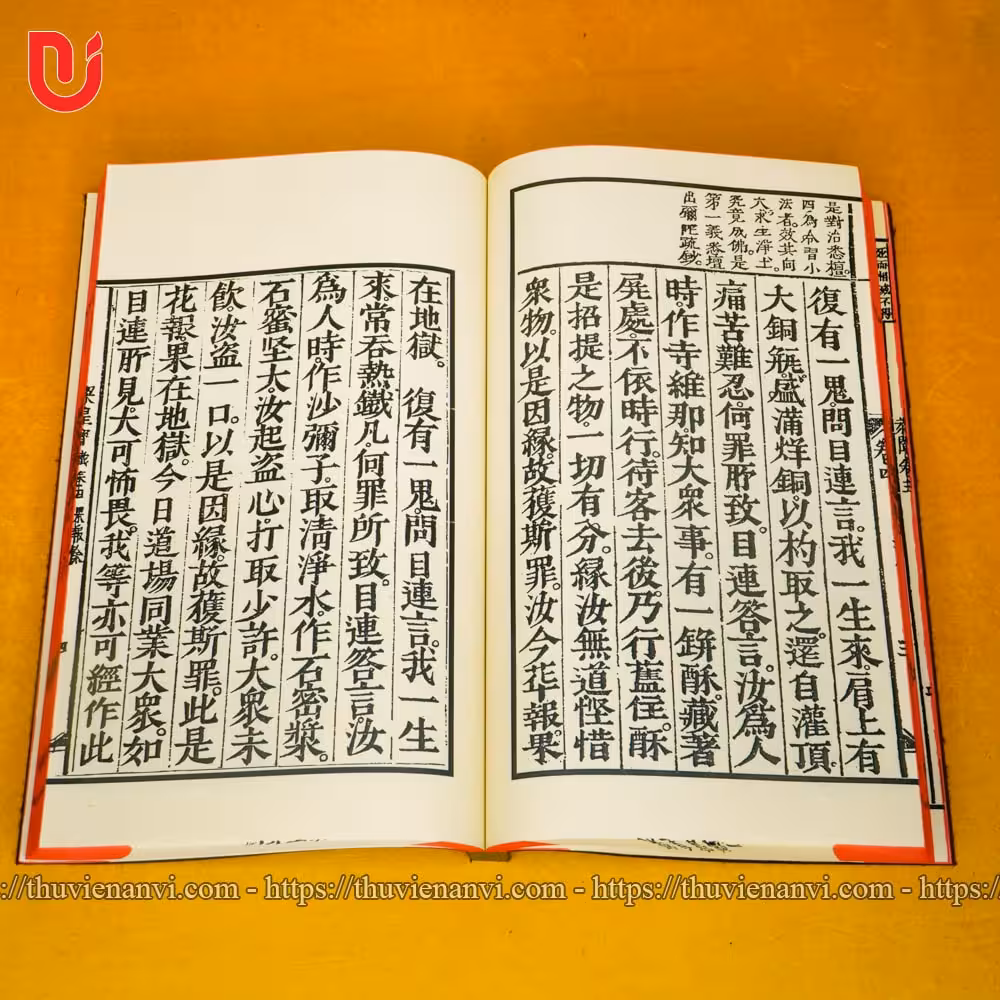 是對治悉檀。
四為令習小
法者效其向
大求生淨土
究竟成佛是
第一義悉檀
出彌陀疏鈔
復有一鬼。問目連言。我一生來。肩上有
大銅瓶。盛滿烊銅。以杓取之。還自灌頂。
痛苦難忍。何罪所致。目連答言。汝為人
時。作寺維那。知大衆事。有一鉼酥。藏著
屏處。不依時行。待客去後。乃行舊住。酥
是招提之物。一切有分。緣汝無道慳惜
衆物。以是因緣。故獲斯罪。汝今華報。果
在地獄。　復有一鬼。問目連言。我一生
來。常吞熱鐵凡。何罪所致。目連答言。汝
為人時。作沙彌子。取清淨水。作石密漿。
石蜜坚大。汝起盗心。打取少許。大衆未
飲。汝盗一口。以是因緣。故獲斯罪。此是
花報。果在地獄。今日道場同業大衆。如
目連所見。大可怖畏。我等亦可經作此
https://thuvienanvi.com - https://thuvienanvi.com - https://thuvienanvi.com